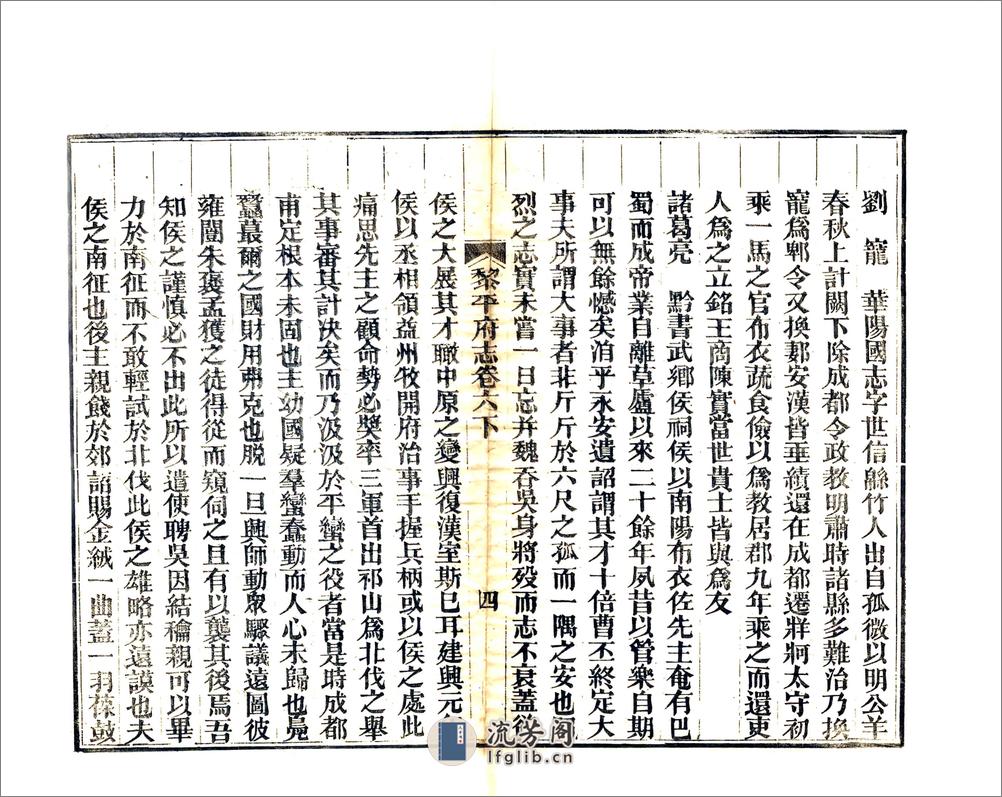 劉寵　華陽國志字世信緜竹人出自孤微以明公羊
春秋上計闕下除成都令政教明肅時諸縣多難治乃換
寵爲郫令又換郪安漢皆垂績還在成都遷牂牁太守初
乘一馬之官布衣蔬食儉以爲教居郡九年乘之而還吏
人爲之立銘王商陳實當世貴士皆與爲友
諸葛亮　黔書武鄉侯祠侯以南陽布衣佐先主奄有巴
蜀而成帝業自離草廬以來二十餘年夙昔以管樂自期
可以無餘憾矣洎乎永安遺詔謂其才十倍曹丕終定大
事夫所謂大事者非斤斤於六尺之孤而一隅之安也
烈之志實未嘗一日忘并魏吞吳身將歿而志不衰蓋從
黎平府志卷六下
四
侯之大展其才瞰中原之變興復漢室斯已耳建興元
侯以丞相領益州牧開府治事手握兵柄或以侯之處此
痛思先主之顧命勢必獎率三軍首出祁山爲北伐之舉
其事審其計決矣而乃汲汲於平蠻之役者當是時成都
甫定根本未固也主幼國疑羣蠻蠢動而人心未歸也
蠶蕞爾之國財用弗克也脫一旦興師動眾驟議遠圖彼
雍闓朱褒孟獲之徒得從而窺伺之且有以襲其後焉吾
知侯之謹慎必不出此所以遣使聘吳因結和親可以畢
力於南征而不敢輕試於北伐此侯之雄略亦遠謨也夫
侯之南征也後主親餞於郊詔賜金鉞一曲蓋一羽葆鼓
流芳阁
lfglib.cn